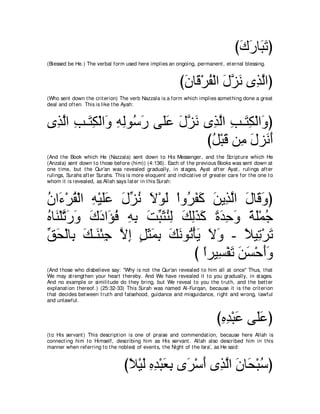 (تَبَارَكَ)
(Blessed be He.) The verbal form used here implies an ongoing, permanent, eternal blessing.
(الَّذِى نَزَّلَ الْفُرْقَانَ)
(Who sent down the criterion) The verb Nazzala is a form which implies something done a great
deal and often. This is like the Ayah:
(وَالْكِتَـبِ الَّذِى نَزَّلَ عَلَى رَسُولِهِ وَالْكِتَـبِ الَّذِى
أَنزَلَ مِن قَبْلُ)
(And the Book which He (Nazzala) sent down to His Messenger, and the Scripture which He
(Anzala) sent down to those before (him)) (4:136). Each of the previous Books was sent down at
one time, but the Qur'an was revealed gradually, in stages, Ayat after Ayat, rulings after
rulings, Surahs after Surahs. This is more eloquent and indicative of greater care for the one to
whom it is revealed, as Allah says later in this Surah:
(وَقَالَ الَّذِينَ كَفَرُواْ لَوْلاَ نُزِّلَ عَلَيْهِ الْقُرْءَانُ
جُمْلَةً وَحِدَةً كَذَلِكَ لِنُثَبِّتَ بِهِ فُؤَادَكَ وَرَتَّلْنَاهُ
تَرْتِيلاً - وَلاَ يَأْتُونَكَ بِمَثَلٍ إِلاَّ جِئْنَـكَ بِالْحَقِّ
وَأَحْسَنَ تَفْسِيراً )
(And those who disbelieve say: "Why is not the Qur'an revealed to him all at once" Thus, that
We may strengthen your heart thereby. And We have revealed it to you gradually, in stages.
And no example or similitude do they bring, but We reveal to you the truth, and the better
explanation thereof.) (25:32-33) This Surah was named Al-Furqan, because it is the criterion
that decides between truth and falsehood, guidance and misguidance, right and wrong, lawful
and unlawful.
(عَلَى عَبْدِهِ)
(to His servant) This description is one of praise and commendation, because here Allah is
connecting him to Himself, describing him as His servant. Allah also described him in this
manner when referring to the noblest of events, the Night of the Isra', as He said:
(سُبْحَانَ الَّذِى أَسْرَى بِعَبْدِهِ لَيْلاً)